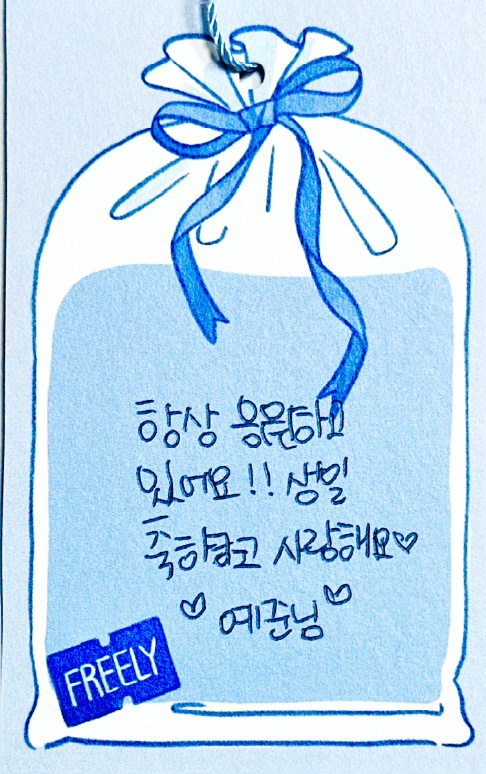 항상 응원하고
있어요!! 생일
축하하고 사랑해요♡
♡ 예준님 ♡
FREELY